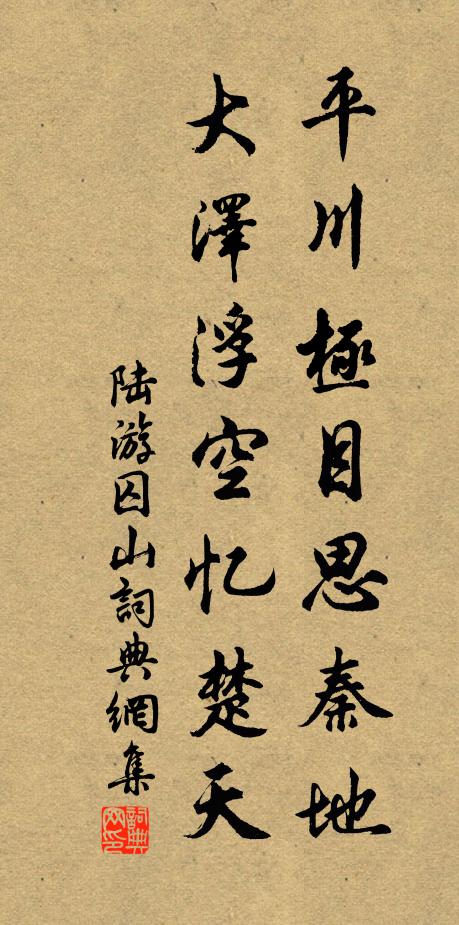 平川極目思秦地
大澤浮空忆楚天
陆游囚山詞典網集
詞典網印